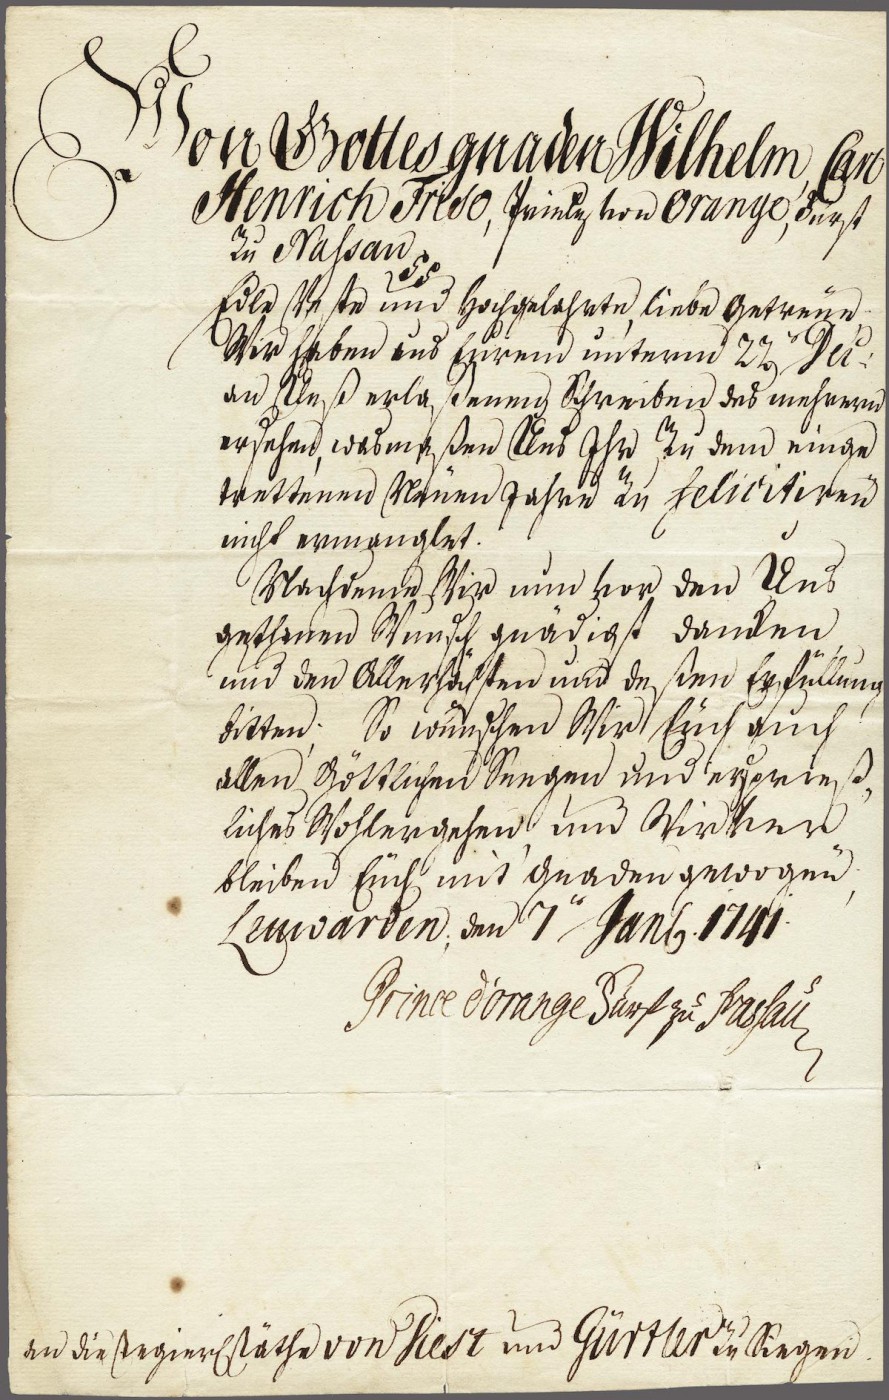 Von Gottes gnaden Wilhelm, Carl
Henrich Friso, Printz von Orange, Fürst
zu Nassau
Edle Veste und Hochgelahrte, liebe Getreüe,
Wir haben aus Eurem unterm 22n Dec:
an Unß erlaßenen Schreiben des mehrern
ersehen, wasmaßen Uns Ihr zu dem einge
trettenen Neüen Jahre zu feliciti ren
nicht ermanglet.
Nachdeme Wir nun vor den Uns
gethanen Wunsch gnädigst dancken
und den Allerhöchsten umb deßen Erfüllung
bitten; So wünschen Wir Eüch auch
allen Göttlichen Seegen und ersprieß,
liches Wohlergehen, und Wir ver
bleiben Eüch mit gnaden gewogen,
Leuwarden, den 7n Jan. 1741.
Prince d'orange Fürst zu Nassau
an die Regier Räthe von Piest und Gürtler zu Siegen.